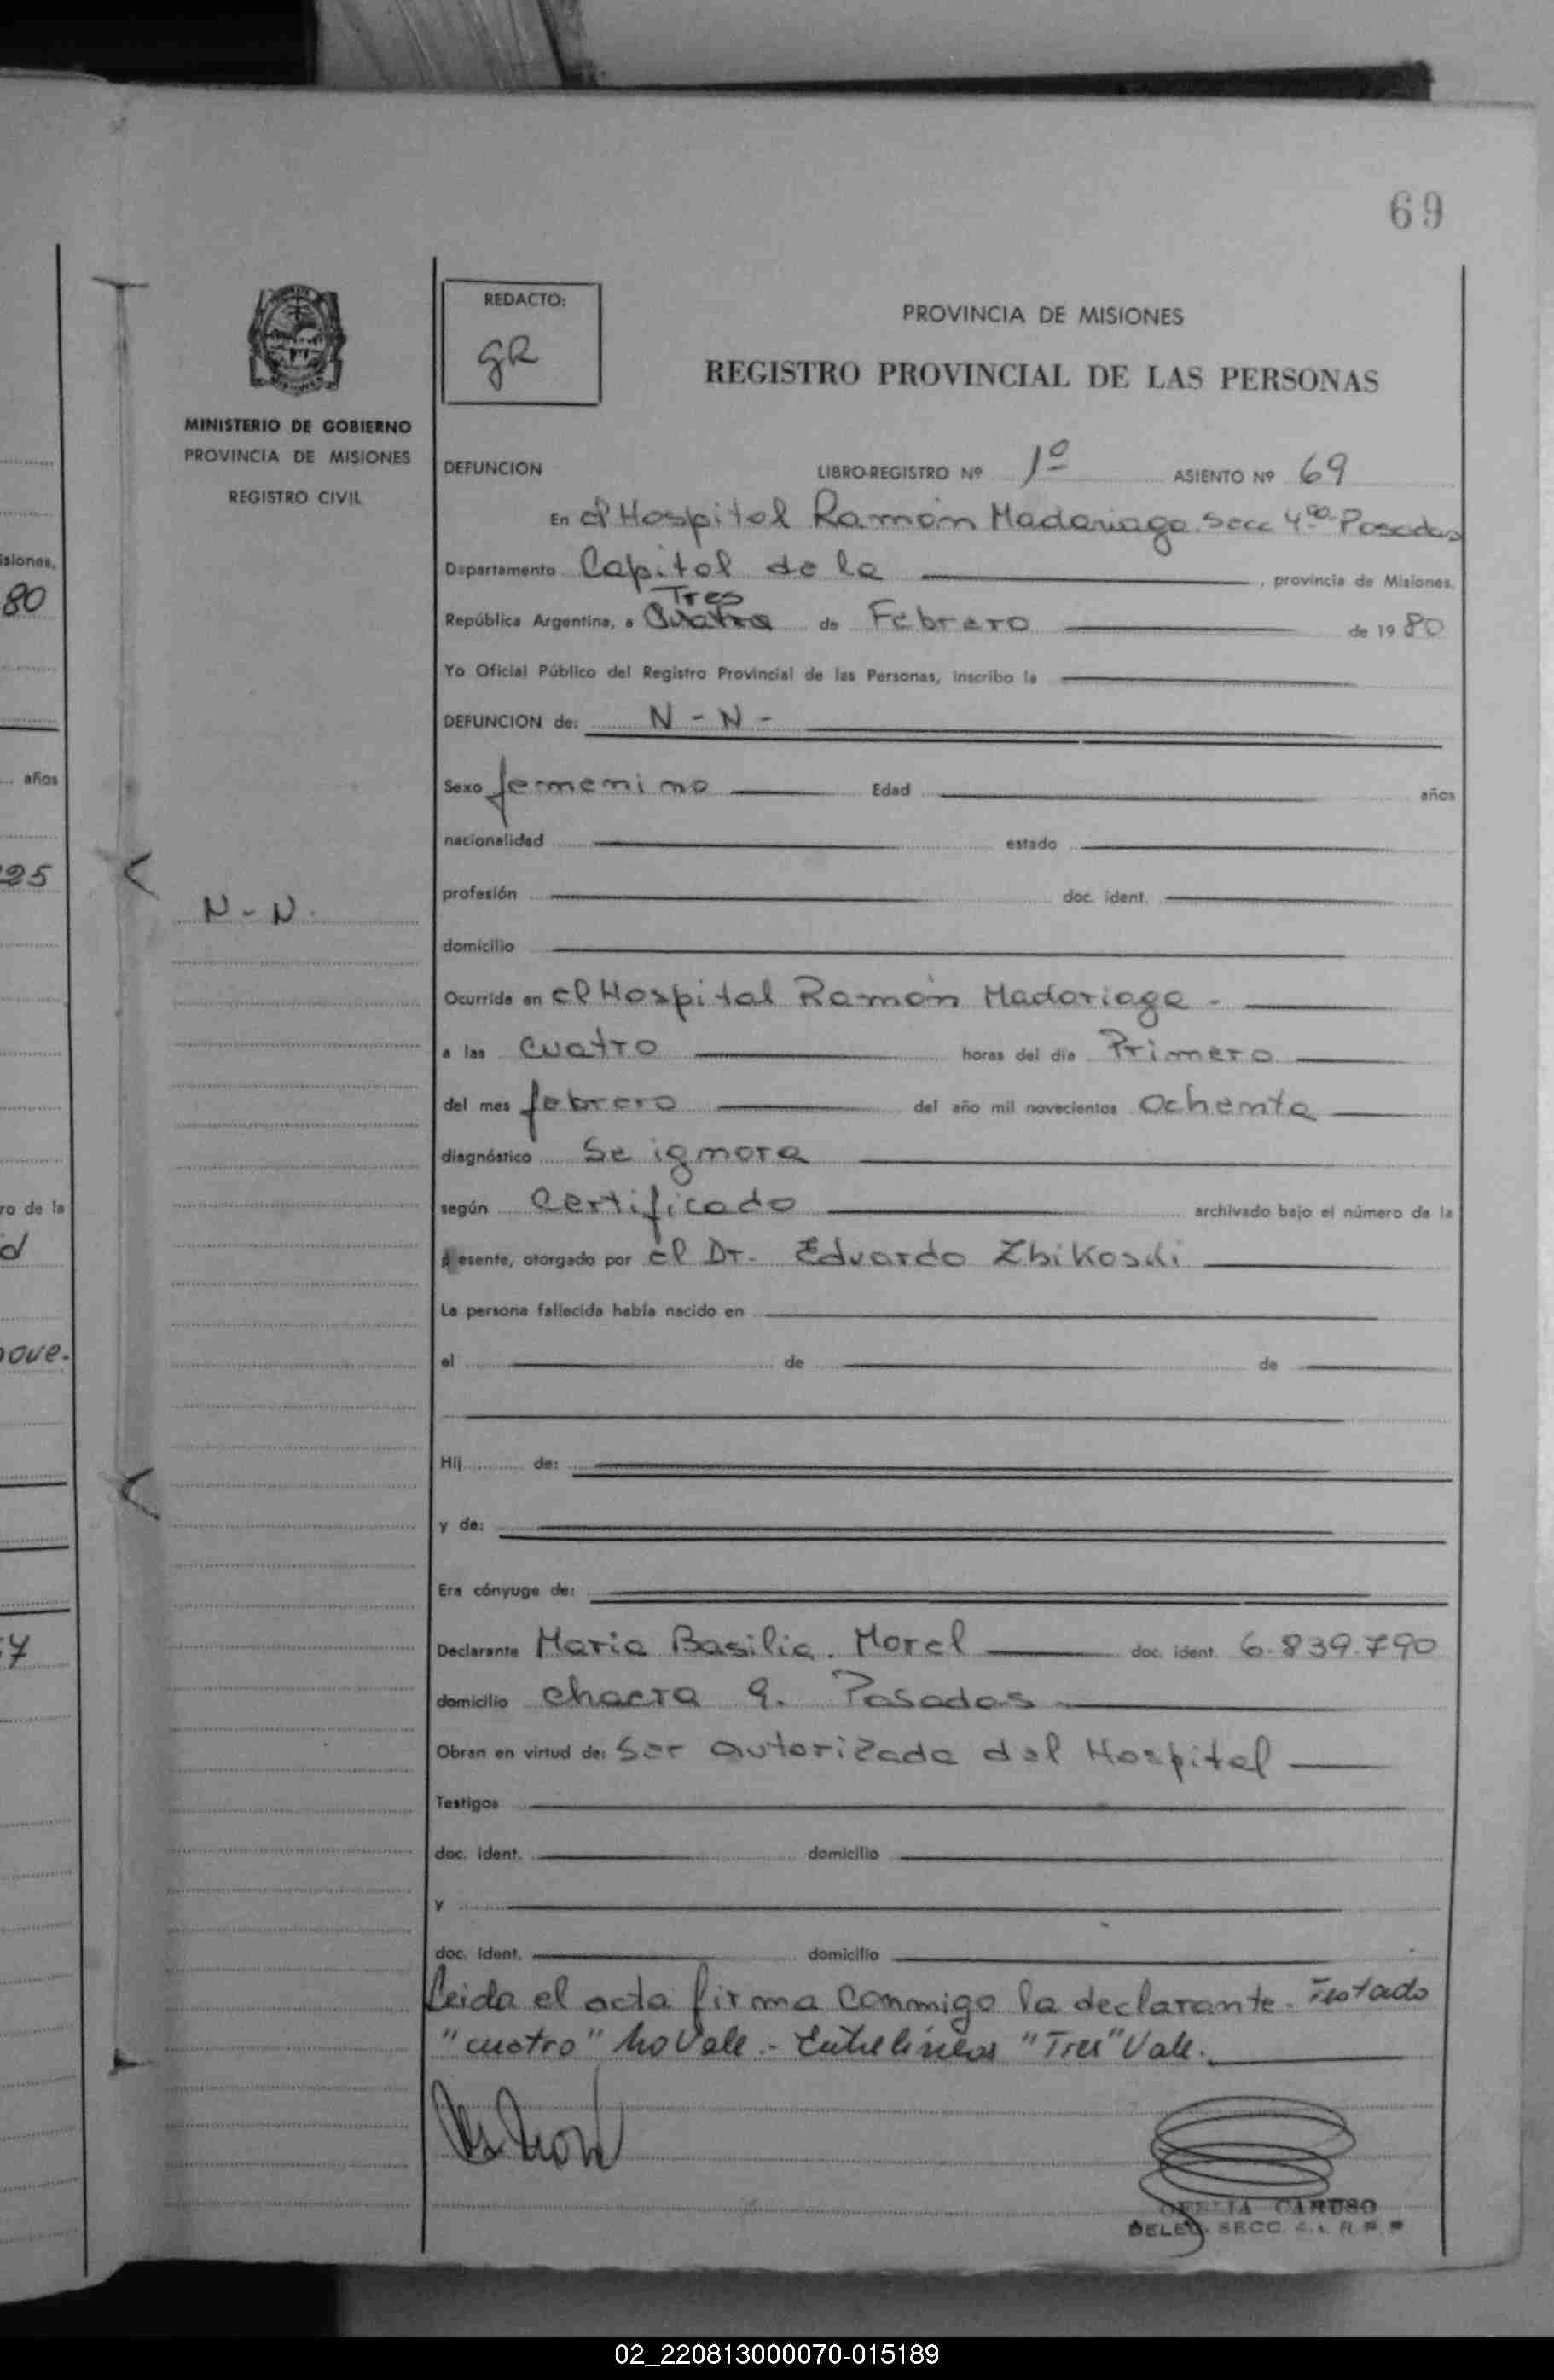 69
REDACTO:
gR
PROVINCIA DE MISIONES
REGISTRO PROVINCIAL DE LAS PERSONAS
MINISTERIO DE GOBIERNO
PROVINCIA DE MISIONES
REGISTRO CIVIL
DEFUNCION LIBRO-REGISTRO Nº 1º ASIENTO Nº 69
En el Hospital Ramón Madariaga. Secc 4ta Posadas
Departamento Capital de la , provincia de Misiones,
Tres
República Argentina, a Cuatro de Febrero de 1980
Yo Oficial Público del Registro Provincial de las Personas, inscribo la
DEFUNCION de: N - N -
Sexo femenino Edad años
nacionalidad estado
profesión doc. ident.
N - N.
domicilio
Ocurrida en el Hospital Ramón Madariaga -
a las cuatro horas del día Primero
del mes febrero del año mil novecientos Ochenta
diagnóstico Se ignora
según Certificado archivado bajo el número de la
presente, otorgado por el Dr. Eduardo Zbikoski
La persona fallecida había nacido en
el de de
Hij de:
y de:
Era cónyuge de:
Declarante Maria Basilia. Morel doc. ident. 6.839.790
domicilio chacra 9. Posadas
Obran en virtud de: Ser autorizada del Hospital
Testigos
doc. ident. domicilio
y
doc. ident. domicilio
Leida el acta firma conmigo la declarante. Testado
"cuatro" No Vale.- Entrelíneas "Tres" Vale.
OFELIA CARUSO
DELEG. SECC. 4. R. P. P
isiones,
80
años
25
ro de la
d
ove.
7
02_220813000070-015189